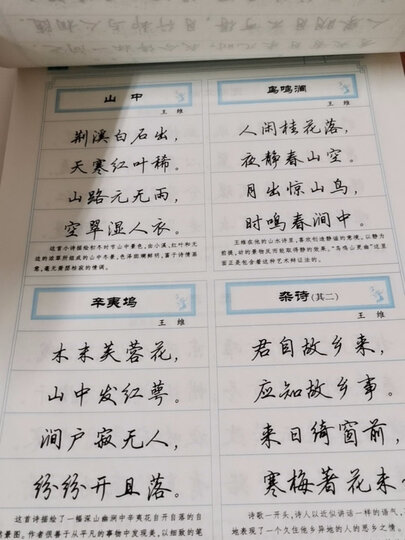 山中
王维
荆溪白石出,
天寒红叶稀。
山路元无雨,
空翠湿人衣。
这首小诗描绘初冬时节山中景色,由小溪、红叶和无
边的浓翠所组成的山中冬景,色泽斑斓鲜明,富于诗情画
意,毫无萧瑟枯寂的情调。
鸟鸣涧
王维
人闲桂花落,
夜静春山空。
月出惊山鸟,
时鸣春涧中。
王维在他的山水诗里,喜欢创造静谧的意境。以静为
前提,动的景物反而能取得静的效果,“鸟鸣山更幽”这里
面正是包含着这种艺术辩证法的。
辛夷坞
王维
木末芙蓉花,
山中发红萼。
涧户寂无人,
纷纷开且落。
这首诗描绘了一幅深山幽涧中辛夷花自开自落的自
景图。作者很善于从平凡的事物中发现美,以细致的笔
杂诗(其二)
王维
君自故乡来,
应知故乡事。
来日绮窗前,
寒梅著花未
诗歌一开头,诗人以近似讲话一样的语气,
地表现了一个久住他乡异地的人的思乡之情。